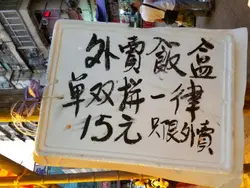 外賣飯盒
單双拼一律
15元 只限外賣